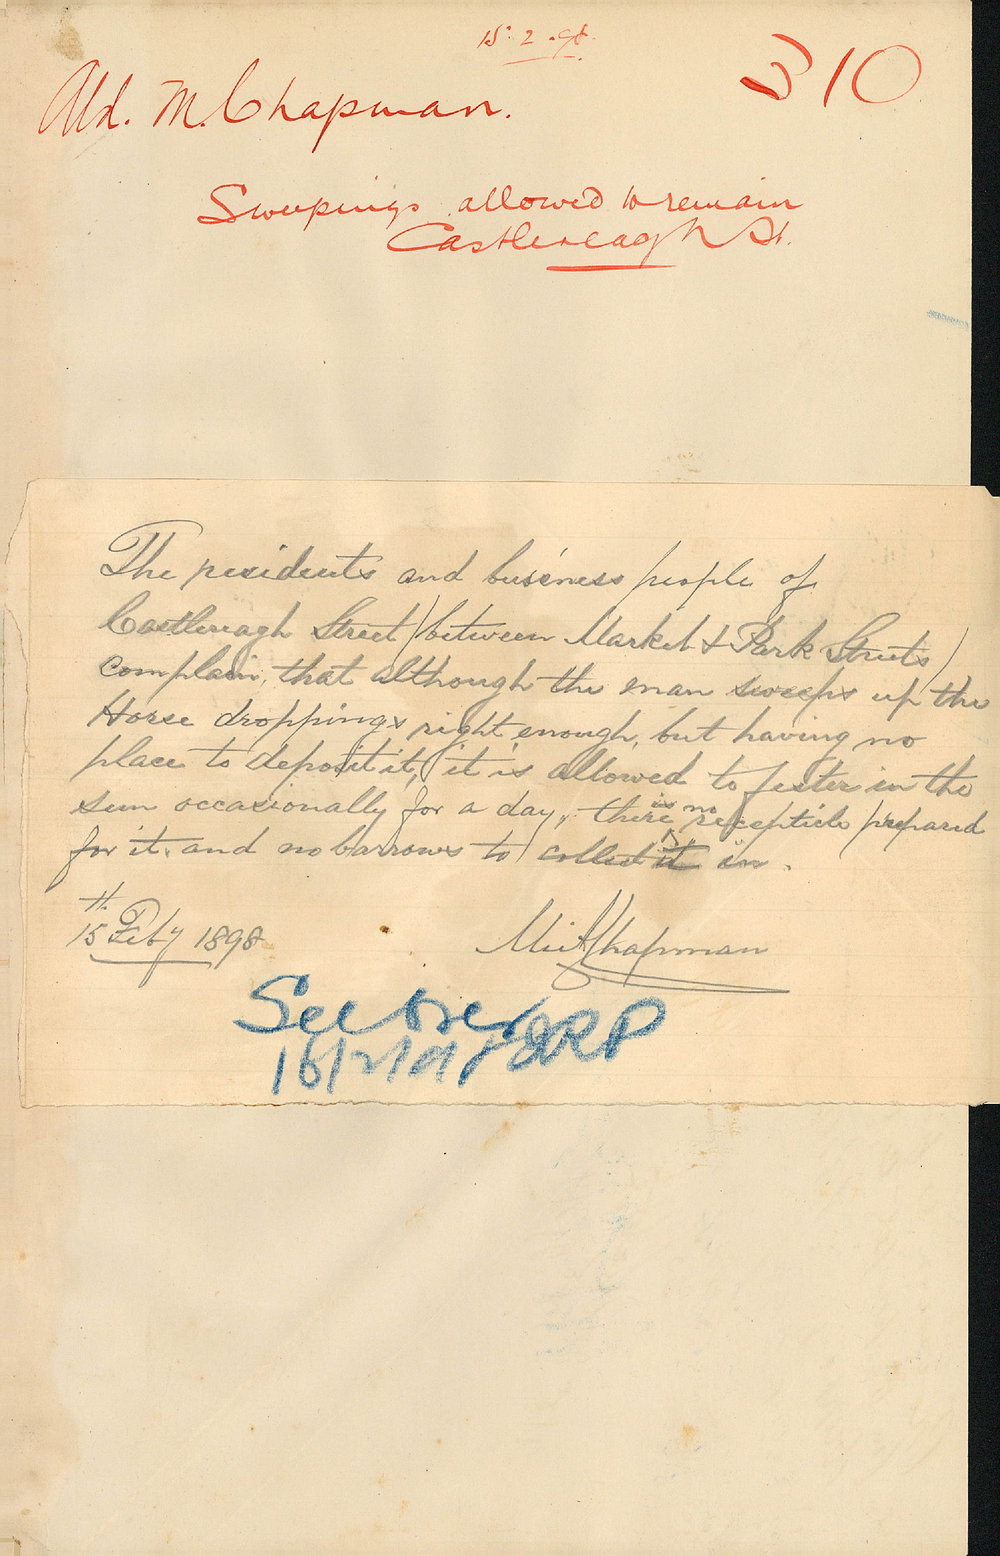 15. 2. 98.
310
Ald. M. Chapman.
Sweepings allowed to remain
Castlereagh St.
The residents and business people of
Castlereagh Street (between Market & Park Streets)
complain, that although the man sweeps up the
Horse droppings right enough, but having no
place to deposit it, it is allowed to fester in the
sun occasionally for a day, there is no recepticle prepared
for it, and no barrows to collect it in.
15th Feby 1898
Mich Chapman
See over
16/2/98